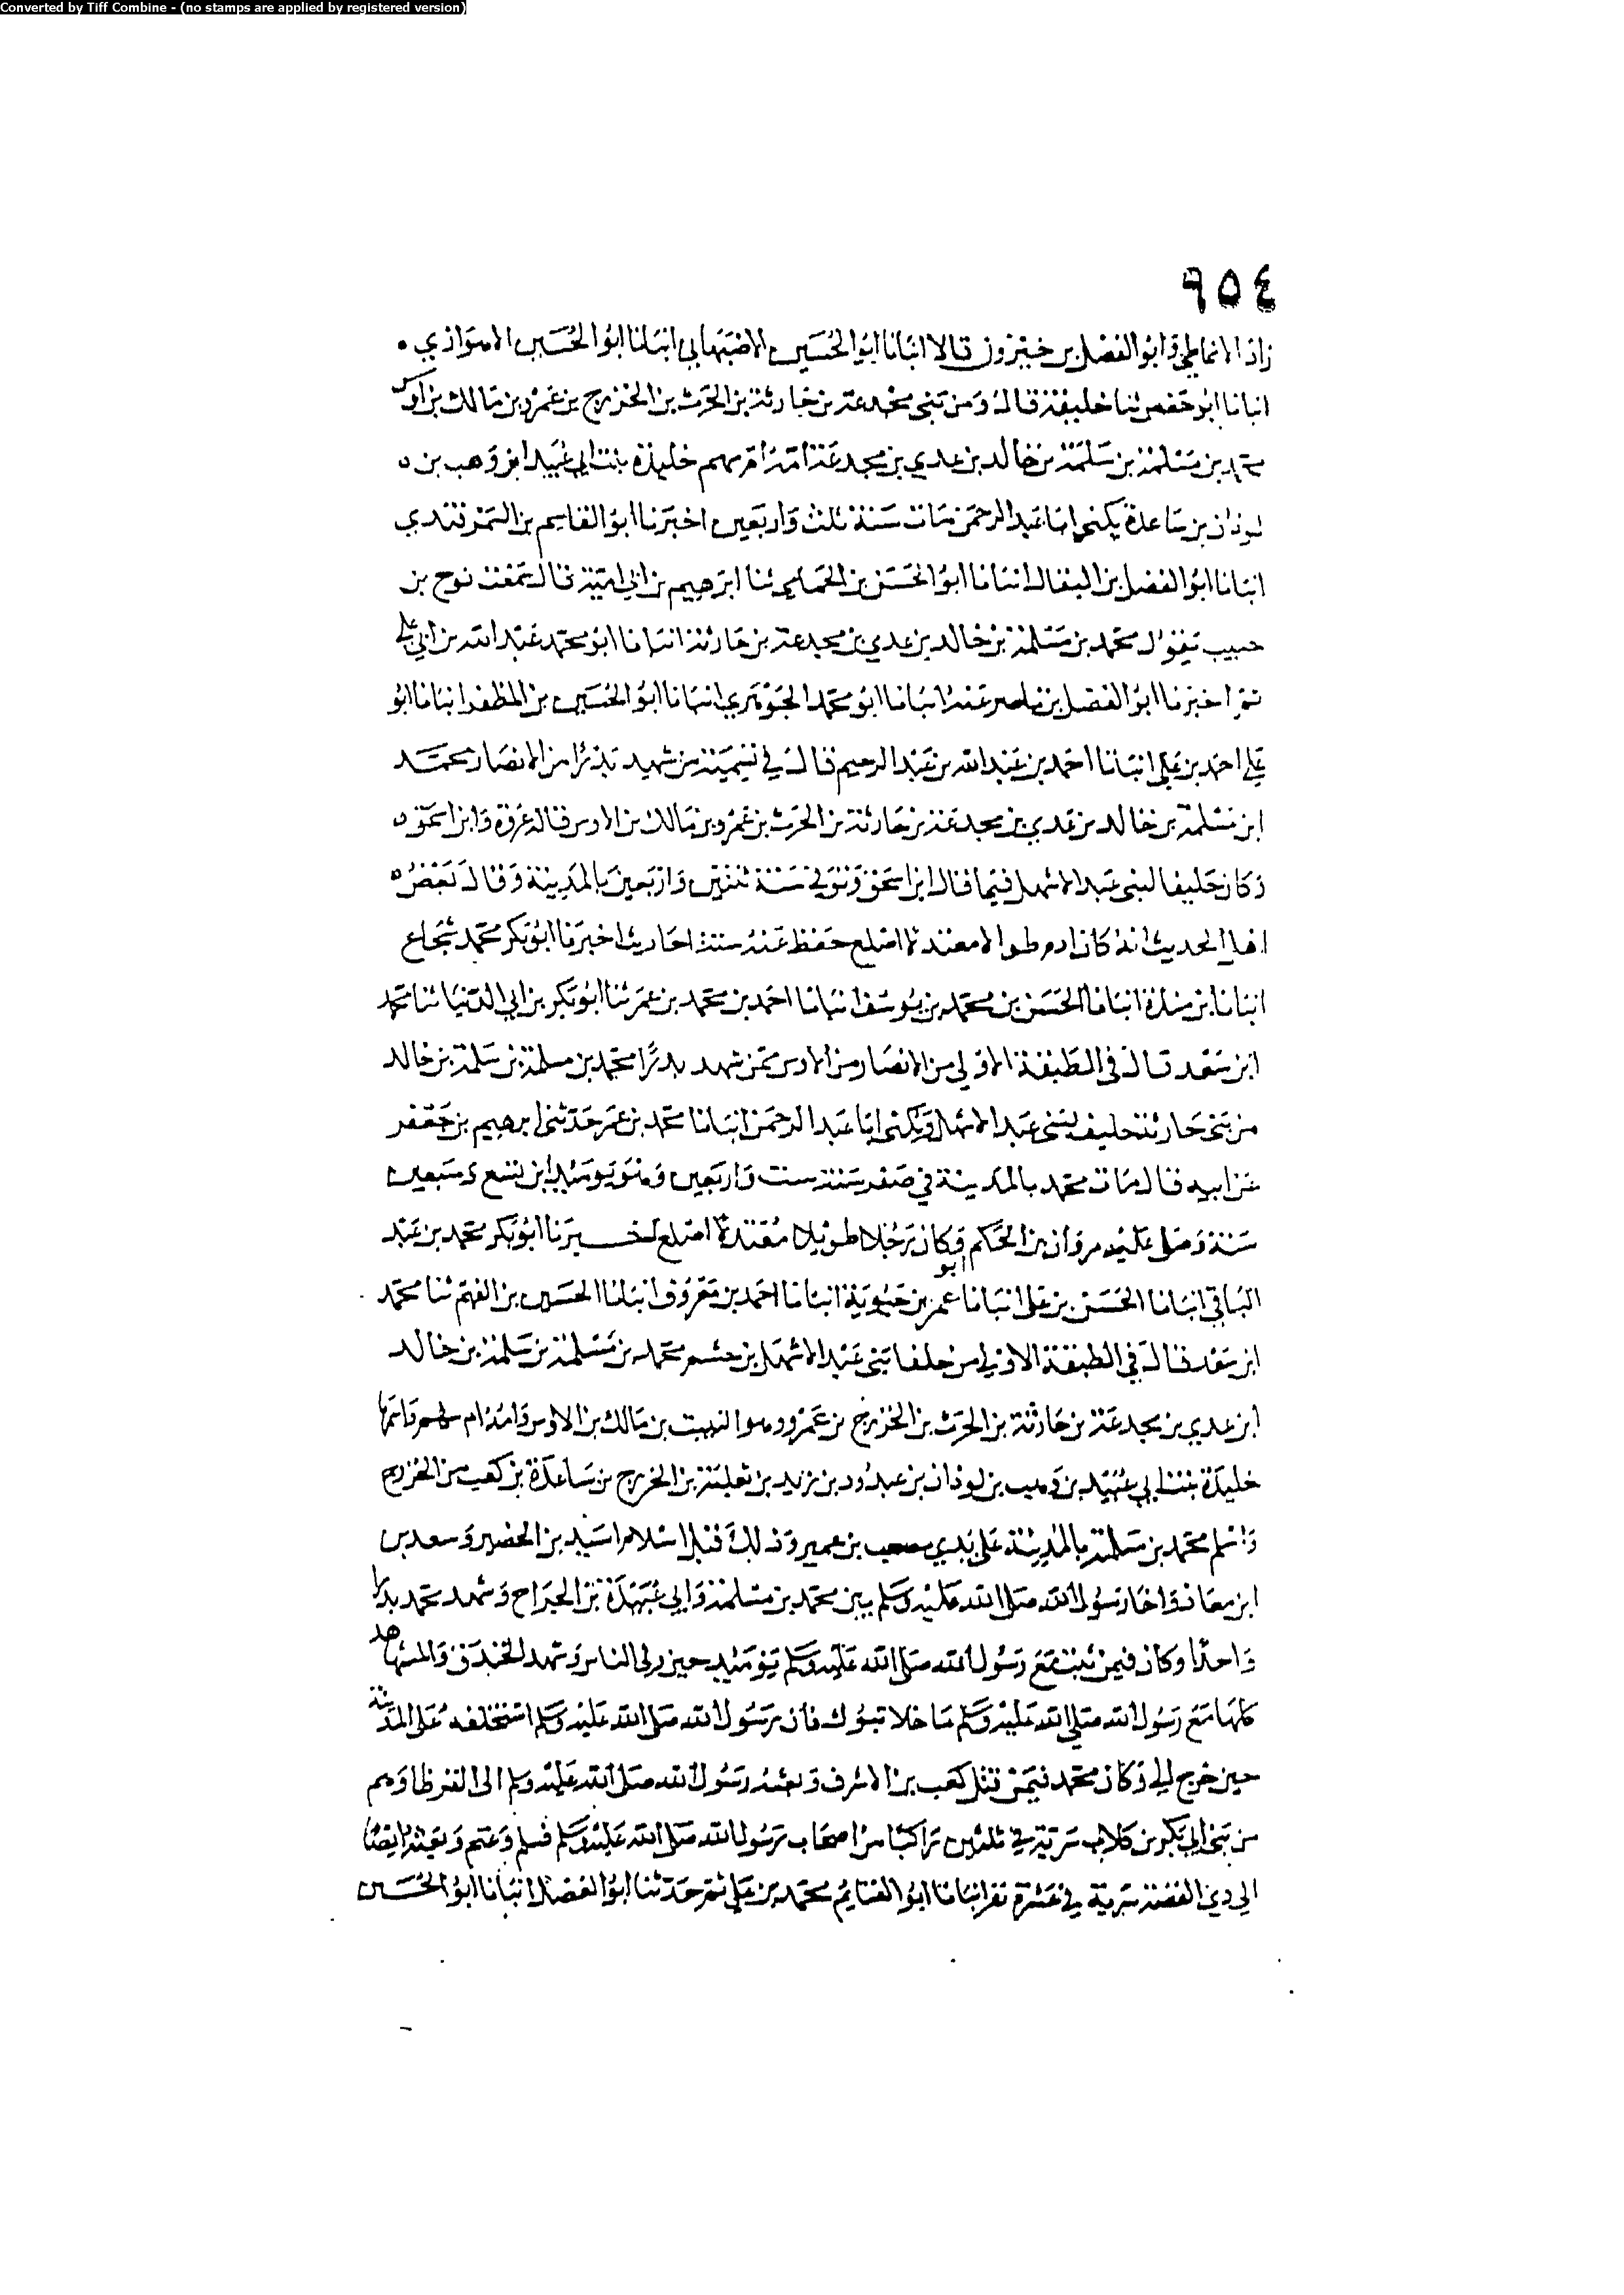 Converted by Tiff Combine - (no stamps are applied by registered version)
٩٥٤
زاد الانماطي وابو الفضل بن خيرون قالا انبانا ابو الحسين الاصبهاني انبانا ابو الحسين الاهوازي
انبانا ابو حفص ثنا خليفة قال ومن بني مجدعة بن حارثة بن الحرث بن الخزرج بن عمرو بن مالك بن اوس
محمد بن مسلمة بن سلمة بن خالد بن عدي بن مجدعة امه ام سهم خليدة بنت ابي عبيد ابن وهب بن
لوذان بن ساعدة يكنى ابا عبد الرحمن مات سنة ثلث واربعين اخبرنا ابو القاسم بن السمرقندي
انبانا ابو الفضل بن البقال انبانا ابو الحسن بن الحمامي ثنا ابرهيم بن ابي امية قال سمعت نوح بن
حبيب يقول محمد بن مسلمة بن خالد بن عدي بن مجدعة بن حارثة انبانا ابو محمد عبد الله بن ابي علي
ثم اخبرنا ابو الفضل بن ناصر عنه انبانا ابو محمد الجوهري انبانا ابو الحسين بن المظفر انبانا ابو
علي احمد بن علي انبانا احمد بن عبد الله بن عبد الرحيم قال في تسمية من شهد بدرا من الانصار محمد
ابن مسلمة بن خالد بن عدي بن مجدعة بن حارثة بن الحرث بن عمرو بن مالك بن الاوس قاله عروة وابن اسحق
وكان حليفا لبني عبد الاشهل فيما قال ابن اسحق وتوفي سنة ثنتين واربعين بالمدينة وقال بعض
اهل الحديث انه كان ادم طوالا معتدلا اصلع حفظ عنه ستة احاديث اخبرنا ابو بكر محمد شجاع
انبانا ابن مندة انبانا الحسن بن محمد بن يوسف انبانا احمد بن محمد بن عمر ثنا ابو بكر بن ابي الدنيا ثنا محمد
ابن سعد قال في الطبقة الاولى من الانصار من الاوس ممن شهد بدرا محمد بن مسلمة بن سلمة بن خالد
من بني حارثة حليف لبني عبد الاشهل ويكنى ابا عبد الرحمن انبانا محمد بن عمر حدثني ابرهيم بن جعفر
عن ابيه قال مات محمد بالمدينة في صفر سنة ست واربعين وهو يومئذ ابن سبع وسبعين
سنة وصلى عليه مروان بن الحكم وكان رجلا طويلا معتدلا اصلع اخبرنا ابو بكر محمد بن عبد
الباقي انبانا الحسن بن علي انبانا ابو عمر بن حيوية انبانا احمد بن معروف انبانا الحسين بن الفهم ثنا محمد
ابن سعد قال في الطبقة الاولى من حلفا بني عبد الاشهل بن جشم محمد بن مسلمة بن سلمة بن خالد
ابن عدي بن مجدعة بن حارثة بن الحرث بن الخزرج بن عمرو وهو النبيت بن مالك بن الاوس وامه ام سهم واسمها
خليدة بنت ابي عبيد بن وهيب بن لوذان بن عبدود بن زيد بن ثعلبة بن الخزرج بن ساعدة بن كعب من الخزرج
واسلم محمد بن مسلمة بالمدينة على يدي مصعب بن عمير وذلك قبل اسلام اسيد بن الحضير وسعد بن
ابن معاذ واخا رسول الله صلى الله عليه وسلم بين محمد بن مسلمة وابي عبيدة بن الجراح وشهد محمد بدرا
واحدا وكان فيمن ثبت مع رسول الله صلى الله عليه وسلم يومئذ حين ولى الناس وشهد الخندق والمشاهد
كلها مع رسول الله صلى الله عليه وسلم ما خلا تبوك فان رسول الله صلى الله عليه وسلم استخلفه على المدينة
حين خرج اليـ وكان محمد فيمن قتل كعب بن الاشرف وبعثه رسول الله صلى الله عليه وسلم الى القرظا وهم
من بني ابي بكر بن كلاب سرية في ثلثين راكبا من اصحاب رسول الله صلى الله عليه وسلم فسلم وغنم وبعثه ايضا
الى ذي القصة سرية في عشرة نفر انبانا ابو الغنايم محمد بن علي ثم حدثنا ابو الفضل انبانا ابو الحسين